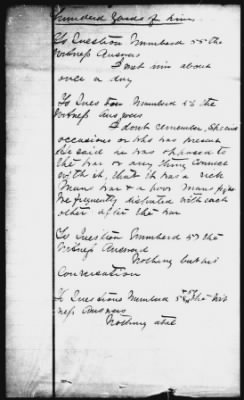 hundred yards of him
To Question Numberd 55 the
Witness Answers
I met him about
once a day
To Question Numberd 56 the
Witness Answers
I dont remember, Special
occasions or who was present
He said he was opposed to
the war or any thing connected
with it, that it was a rich
mans war & a poor mans fight
We frequently disputed with each
other after the war
To Question Numberd 57 the
Witness Answerd
Nothing but his
Conversation
To Questions Numberd 58 the Wit
ness Answers
Nothing atal